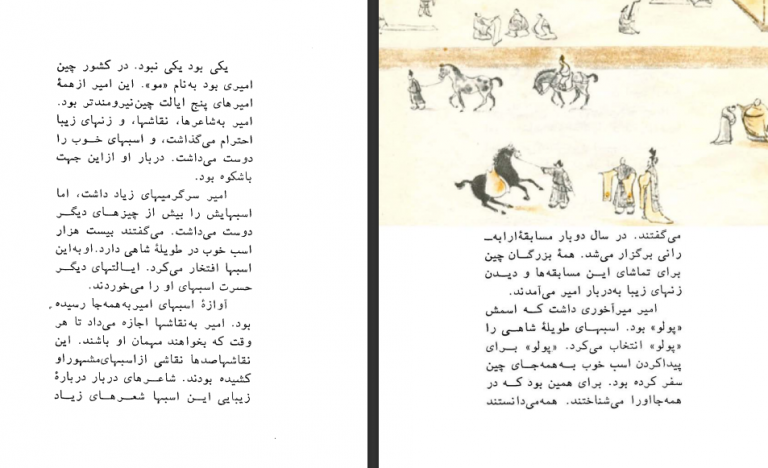 یکی بود یکی نبود. در کشور چین
امیری بود به‌نام «مو». این امیر از همهٔ
امیرهای پنج ایالت چین نیرومندتر بود.
امیر به‌شاعرها، نقاشها، و زنهای زیبا
احترام می‌گذاشت، و اسبهای خوب را
دوست می‌داشت. دربار او ازاین جهت
باشکوه بود.
امیر سرگرمیهای زیاد داشت، اما
اسبهایش را بیش از چیزهای دیگر
دوست می‌داشت. می‌گفتند بیست هزار
اسب خوب در طویلهٔ شاهی دارد. او به‌این
اسبها افتخار می‌کرد. ایالتهای دیگر
حسرت اسبهای او را می‌خوردند.
آوازهٔ اسبهای امیر به‌همه‌جا رسیده
بود. امیر به‌نقاشها اجازه می‌داد تا هر
وقت که بخواهند مهمان او باشند. این
نقاشها صدها نقاشی از اسبهای مشهور او
کشیده بودند. شاعرهای دربار دربارهٔ
زیبایی این اسبها شعرهای زیاد
می‌گفتند. در سال دوبار مسابقهٔ ارابه‌ـ
رانی برگزار می‌شد. همهٔ بزرگان چین
برای تماشای این مسابقه‌ها و دیدن
زنهای زیبا به‌دربار امیر می‌آمدند.
امیر میرآخوری داشت که اسمش
«پولو» بود. اسبهای طویلهٔ شاهی را
«پولو» انتخاب می‌کرد. «پولو» برای
پیداکردن اسب خوب به‌همه‌جای چین
سفر کرده بود. برای همین بود که در
همه‌جا اورا می‌شناختند. همه‌می‌دانستند